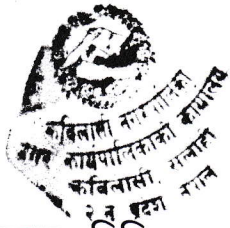 कविलासी नगरपालिका
नगर कार्यपालिकाको कार्यालय
कविलासी, सर्लाही
२ नं प्रदेश नेपाल